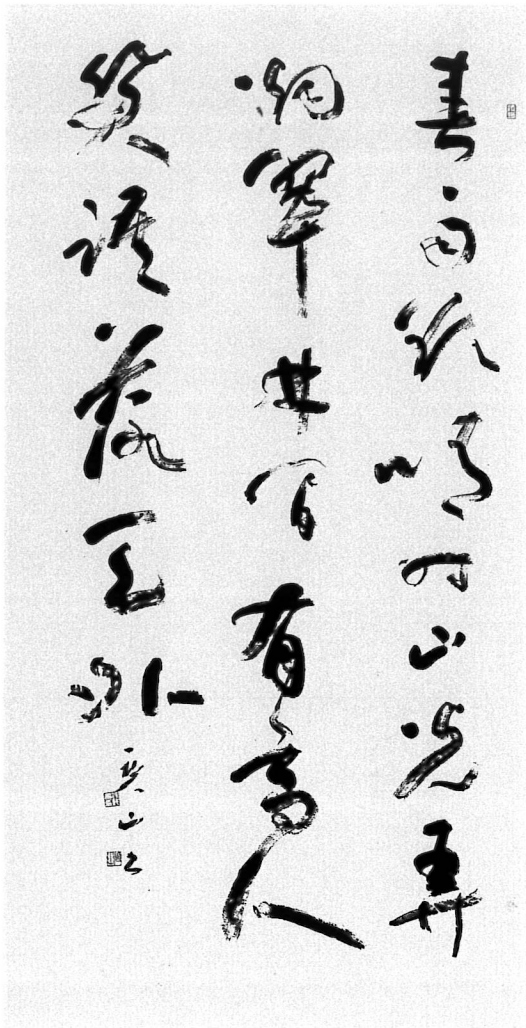 春雨欲晴時山光弄
烟翠林間有高人
笑語落天外